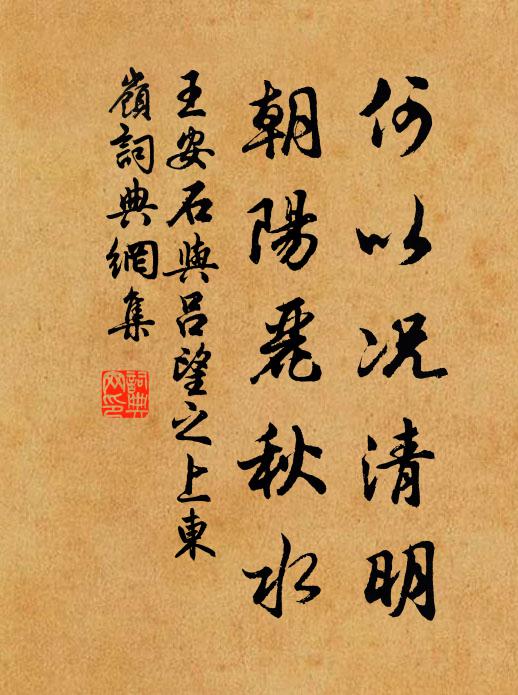 何以况清明
朝陽麗秋水
王安石與呂望之上東
嶺詞典網集
詞典
网印